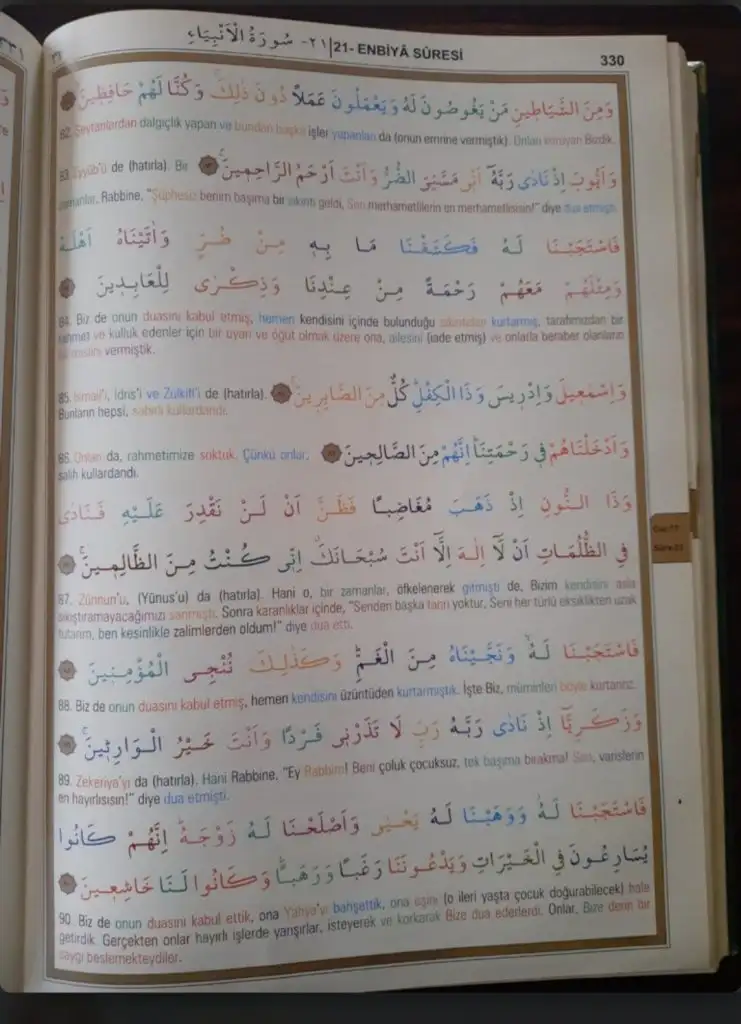 ٢١- سُورَةُ الْاَنْبِيَاءِ | 21- ENBİYÂ SÛRESİ
330
وَمِنَ الشَّيَاطٖينِ مَنْ يَغُوصُونَ لَهُ وَيَعْمَلُونَ عَمَلًا دُونَ ذٰلِكَۚ وَكُنَّا لَهُمْ حَافِظٖينَ
82. Şeytanlardan dalgıçlık yapan ve bundan başka işler yapanları da (onun emrine vermiştik). Onları koruyan Bizdik.
وَاَيُّوبَ اِذْ نَادٰى رَبَّهُٓ اَنّٖى مَسَّنِىَ الضُّرُّ وَاَنْتَ اَرْحَمُ الرَّاحِمٖينَۚ
83. Eyyûb'u de (hatırla). Bir
zamanlar, Rabbine, "Şüphesiz benim başıma bir sıkıntı geldi, Sen merhametlilerin en merhametlisisin!" diye dua etmişti.
فَاسْتَجَبْنَا لَهُ فَكَشَفْنَا مَا بِهٖ مِنْ ضُرٍّ وَاٰتَيْنَاهُ اَهْلَهُ
وَمِثْلَهُمْ مَعَهُمْ رَحْمَةً مِنْ عِنْدِنَا وَذِكْرٰى لِلْعَابِدٖينَ
84. Biz de onun duasını kabul etmiş, hemen kendisini içinde bulunduğu sıkıntıdan kurtarmış, tarafımızdan bir
rahmet ve kulluk edenler için bir uyarı ve öğüt olmak üzere ona, ailesini (iade etmiş) ve onlarla beraber olanların
bir mislini vermiştik.
وَاِسْمٰعٖيلَ وَاِدْرٖيسَ وَذَا الْكِفْلِۜ كُلٌّ مِنَ الصَّابِرٖينَۚ
85. İsmail'i, İdris'i ve Zülkifl'i de (hatırla).
Bunların hepsi, sabırlı kullardandı.
وَاَدْخَلْنَاهُمْ فٖى رَحْمَتِنَاۜ اِنَّهُمْ مِنَ الصَّالِحٖينَ
86. Onları da, rahmetimize soktuk. Çünkü onlar,
salih kullardandı.
وَذَا النُّونِ اِذْ ذَهَبَ مُغَاضِبًا فَظَنَّ اَنْ لَنْ نَقْدِرَ عَلَيْهِ فَنَادٰى
فِى الظُّلُمَاتِ اَنْ لَٓا اِلٰهَ اِلَّٓا اَنْتَ سُبْحَانَكَۗ اِنّٖى كُنْتُ مِنَ الظَّالِمٖينَۚ
87. Zünnun'u, (Yûnus'u) da (hatırla). Hani o, bir zamanlar, öfkelenerek gitmişti de, Bizim kendisini asla
sıkıştıramayacağımızı sanmıştı. Sonra karanlıklar içinde, "Senden başka tanrı yoktur, Seni her türlü eksiklikten uzak
tutarım, ben kesinlikle zalimlerden oldum!" diye dua etti.
فَاسْتَجَبْنَا لَهُۙ وَنَجَّيْنَاهُ مِنَ الْغَمِّۜ وَكَذٰلِكَ نُنْجِى الْمُؤْمِنٖينَ
88. Biz de onun duasını kabul etmiş, hemen kendisini üzüntüden kurtarmıştık. İşte Biz, müminleri böyle kurtarırız.
وَزَكَرِيَّٓا اِذْ نَادٰى رَبَّهُ رَبِّ لَا تَذَرْنٖى فَرْدًا وَاَنْتَ خَيْرُ الْوَارِثٖينَۚ
89. Zekeriya'yı da (hatırla). Hani Rabbine, "Ey Rabbim! Beni çoluk çocuksuz, tek başıma bırakma! Sen, varislerin
en hayırlısısın!" diye dua etmişti.
فَاسْتَجَبْنَا لَهُۘ وَوَهَبْنَا لَهُ يَحْيٰى وَاَصْلَحْنَا لَهُ زَوْجَهُۜ اِنَّهُمْ كَانُوا
يُسَارِعُونَ فِى الْخَيْرَاتِ وَيَدْعُونَنَا رَغَبًا وَرَهَبًاۜ وَكَانُوا لَنَا خَاشِعٖينَ
90. Biz de onun duasını kabul ettik, ona Yahya'yı bahşettik, ona eşini (o ileri yaşta çocuk doğurabilecek) hale
getirdik. Gerçekten onlar hayırlı işlerde yarışırlar, isteyerek ve korkarak Bize dua ederlerdi. Onlar, Bize derin bir
saygı beslemekteydiler.